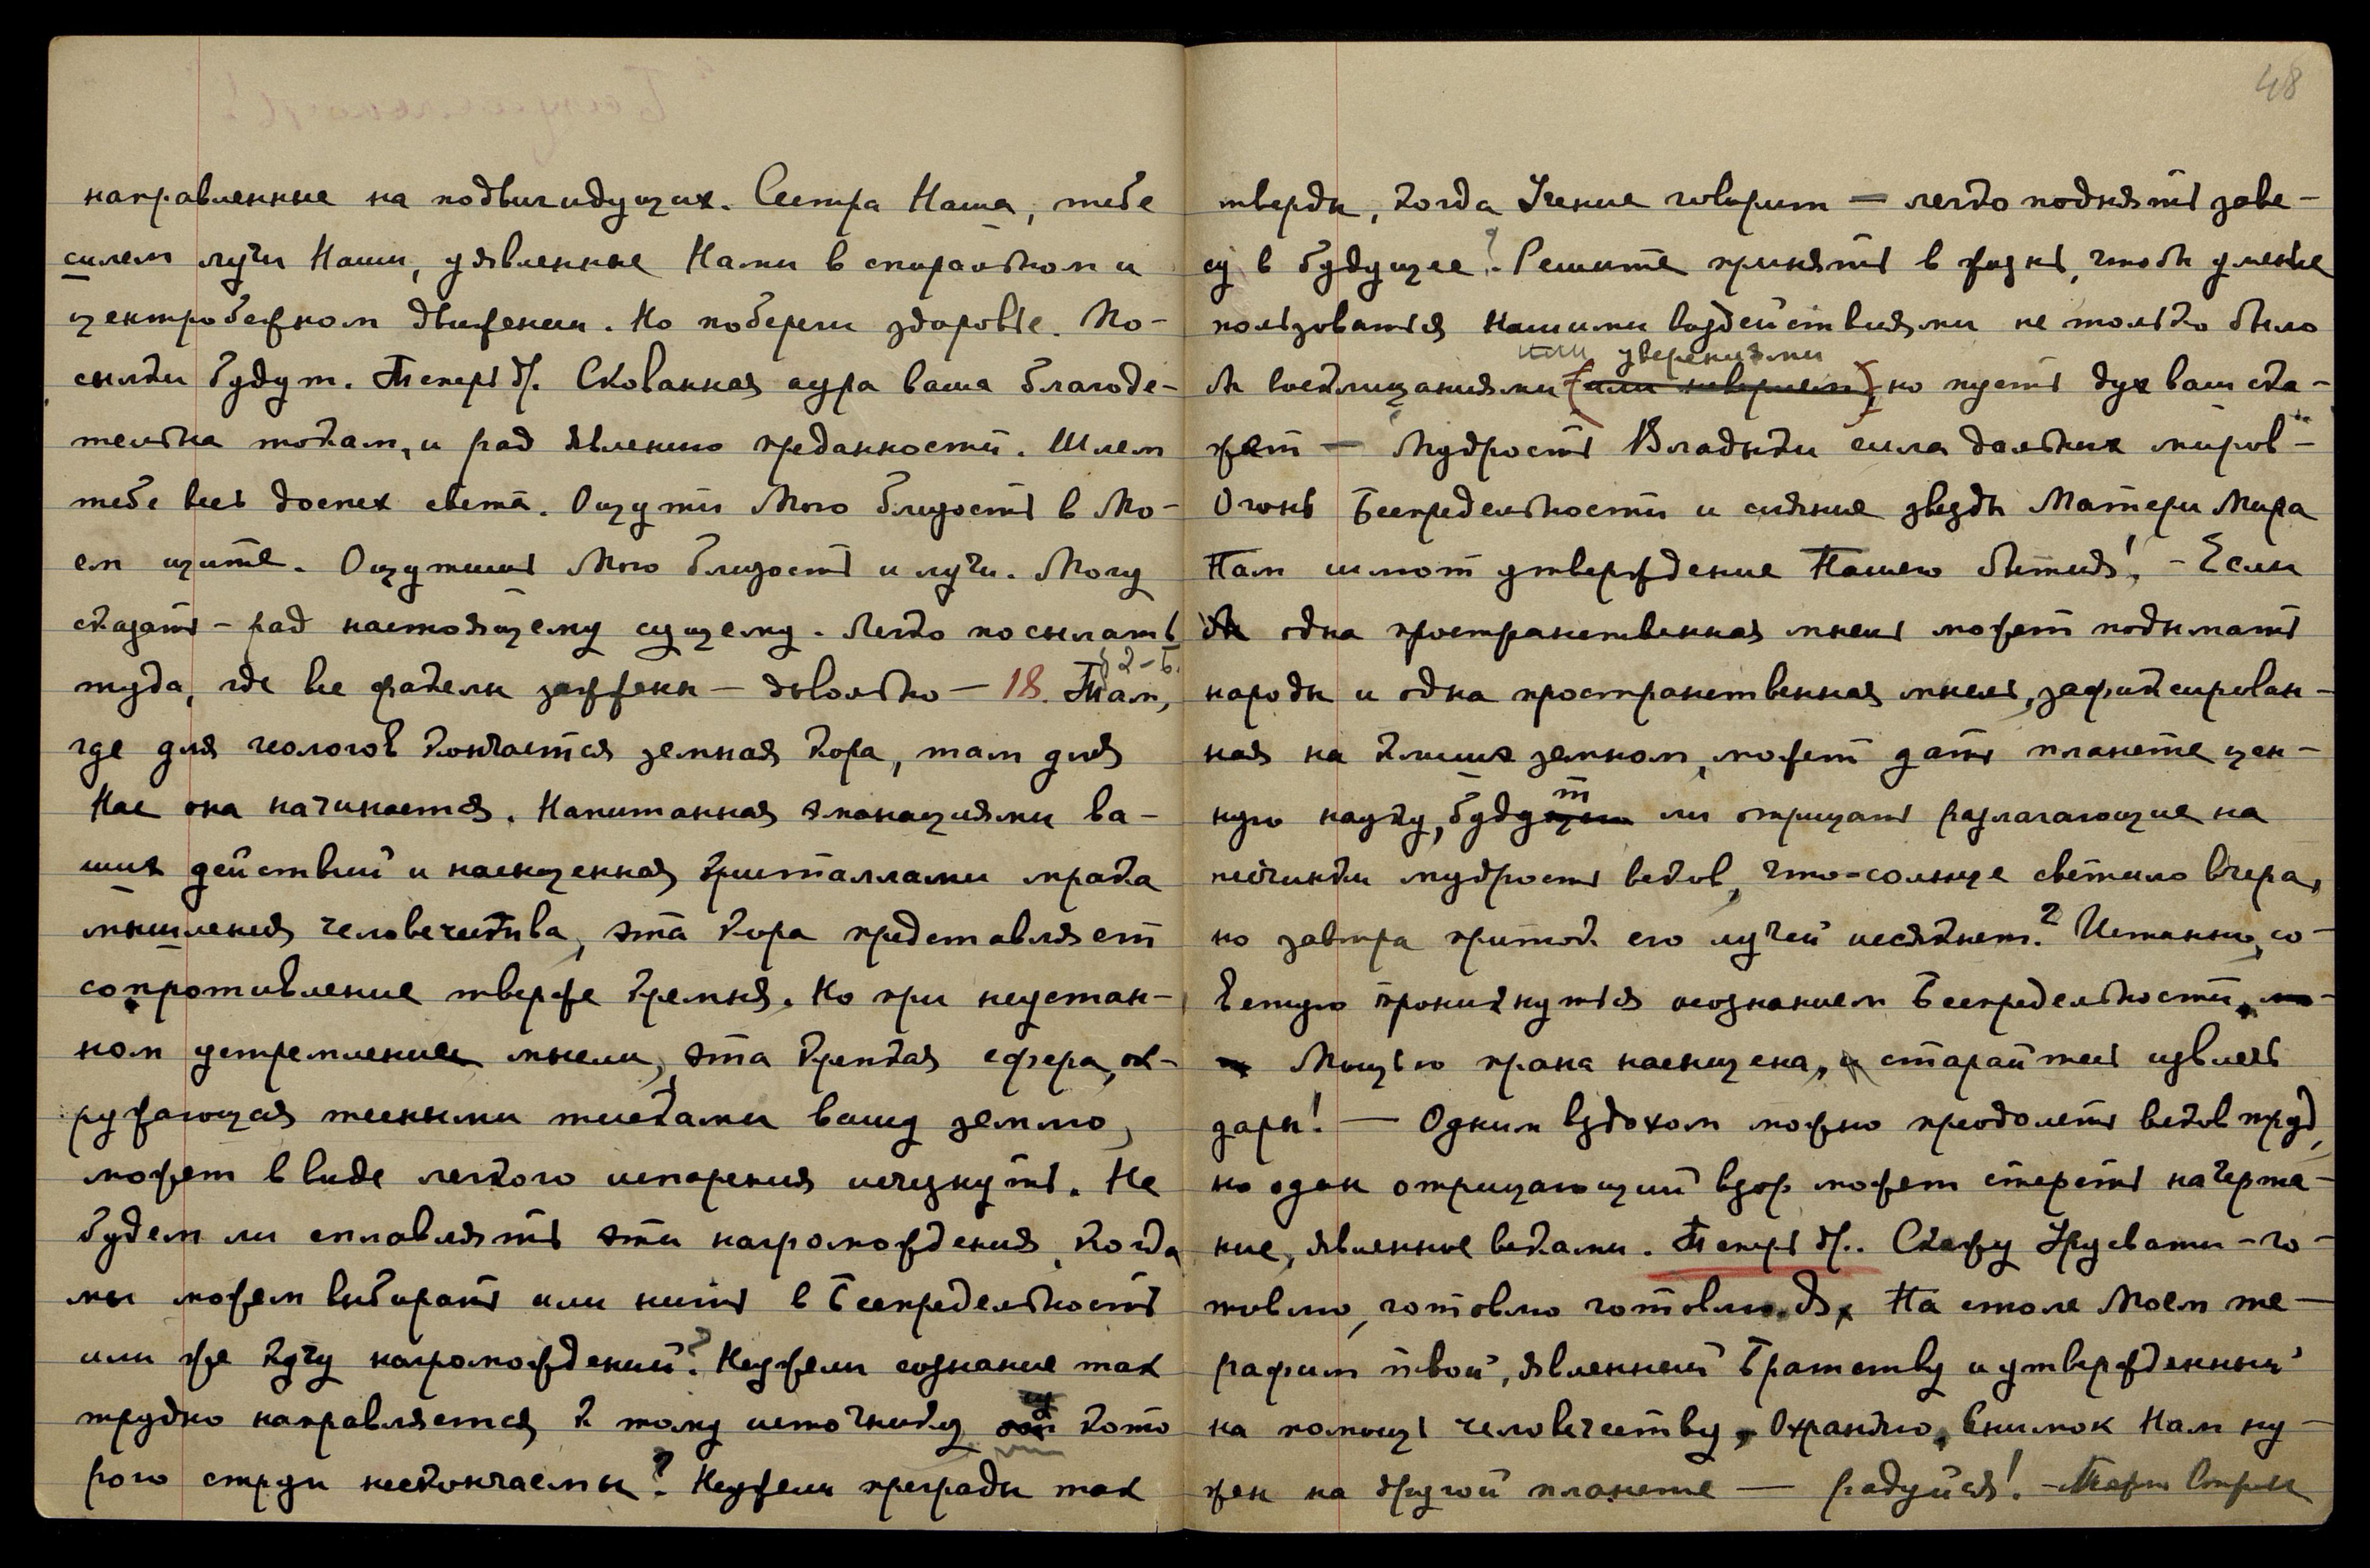 направленные на подвиг идущих. Сестра Наша, тебе
силем лучи Наши, уявленные Нами в спиральном и
центробежном движении. Но побереги здоровье. По-
сылки будут. Теперь др. Скованная аура ваша благоде-
тельна токам, и рад явлению преданности. Шлем
тебе весь доспех света. Ощути Мою близость в Мо-
ем щите. Ощутишь Мою близость и лучи. Могу
сказать – рад настоящему сущему. Легко посылать
§ 2-Б.
туда, где все факелы зажжены – довольно – 18. Там,
где для геологов кончается земная кора, там для
Нас она начинается. Напитанная эманациями ва-
ших действий и насыщенная кристаллами мрака
мышления человечества, эта кора представляет
сопротивление тверже кремня. Но при неустан-
ном устремлении мысли, эта крепкая сфера, ок-
ружающая тесными тисками вашу землю,
может в виде легкого испарения исчезнуть. Не
будем ли сплавлять эти нагромождения, когда
мы можем выбирать или нить в Беспредельность
или же кучу нагромождений? Неужели сознание так
трудно направляется к тому источнику кото
рого струи нескончаемы? Неужели преграды так
48
тверды, когда Учение говорит — легко поднять заве-
су в будущее? Решите принять в жизнь, чтобы умение
пользоваться нашими воздействиями не только было
или уверениями
бы восклицаниями (или ), но пусть дух ваш ска-
жет — "Мудрость Владыки сила дальних миров" –
Огонь Беспредельности и сияние звезды Матери Мира
Нам шлют утверждение Нашего бытия! – Если
бы одна пространственная мысль может поднимать
народы и одна пространственная мысль, зафиксирован-
ная на клише земном, может дать планете цен-
т
ную науку, будущи ли отрицать разлагающие на
песчинки мудрость веков, что-солнце светило вчера,
но завтра приток его лучей иссякнет? Истинно, со-
ветую проникнуться осознанием Беспредельности.
Мощью прана насыщена, и старайтесь извлечь
дары! — Одним вздохом можно преодолеть веков труд,
но один отрицающий взор может стереть начерта-
ние, явленное веками. Теперь др.. Скажу Урусвати – го-
товлю, готовлю готовлю. Да, На столе Моем те-
рафим твой, явленный Братству и утвержденный
на помощь человечеству, Охраняю, Снимок Нам ну-
жен на другой планете — радуйся! –